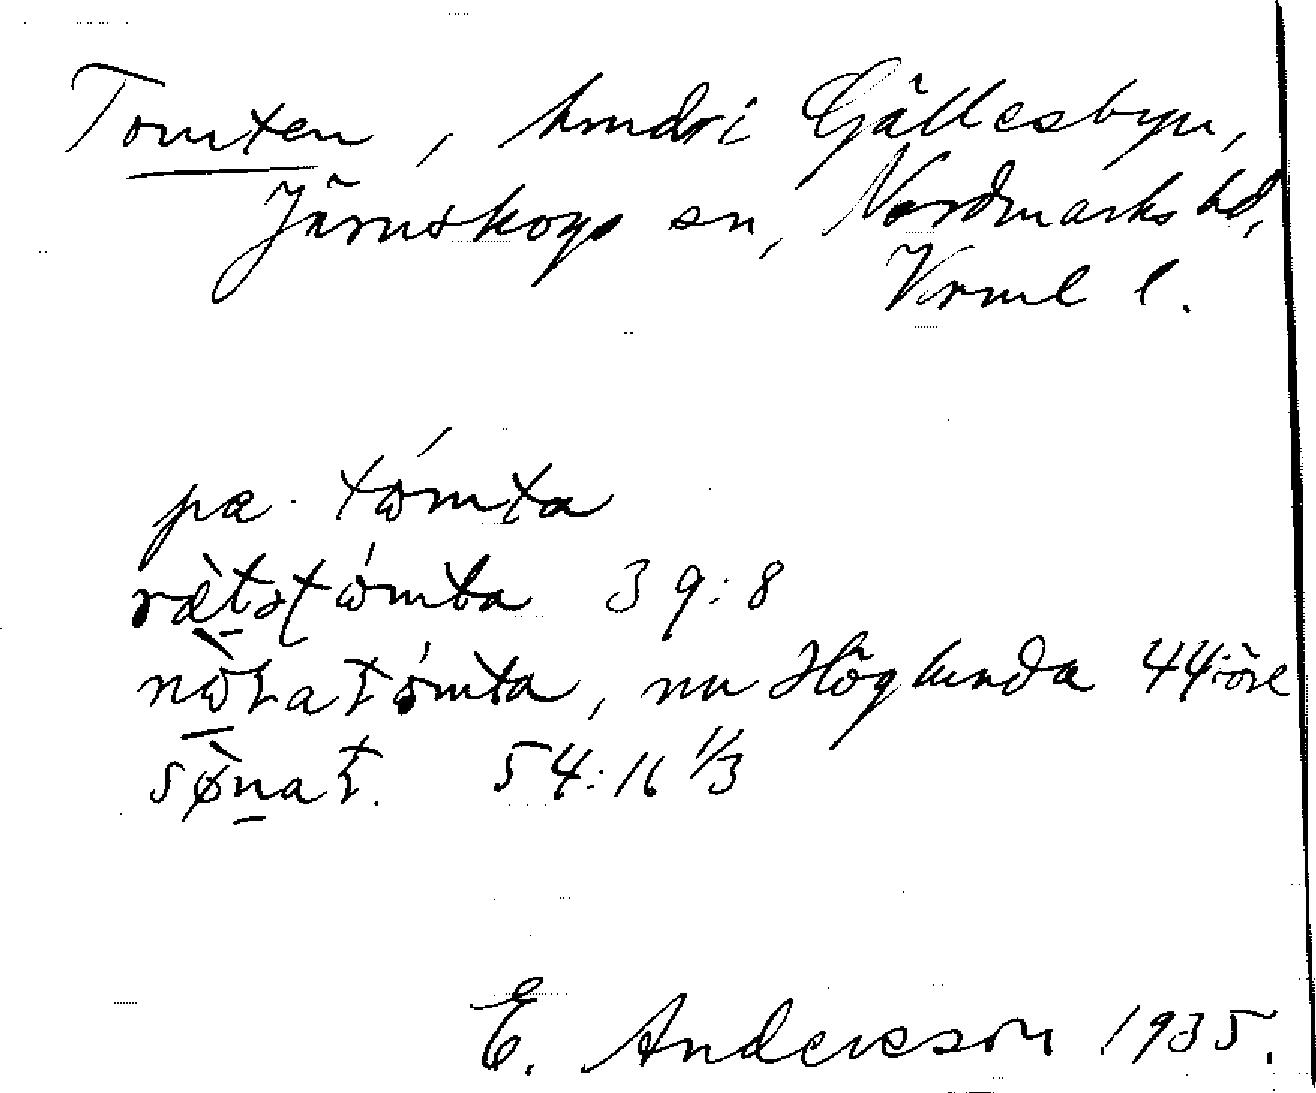 Tomten, hmdr i Gällesbyn,
Järnskogs sn, Nordmarks hd,
Vrml l.
pa tómta
rætstómta 39:8
Höglunda 44:öre
54:16 1/3
E. Andersson 1935.